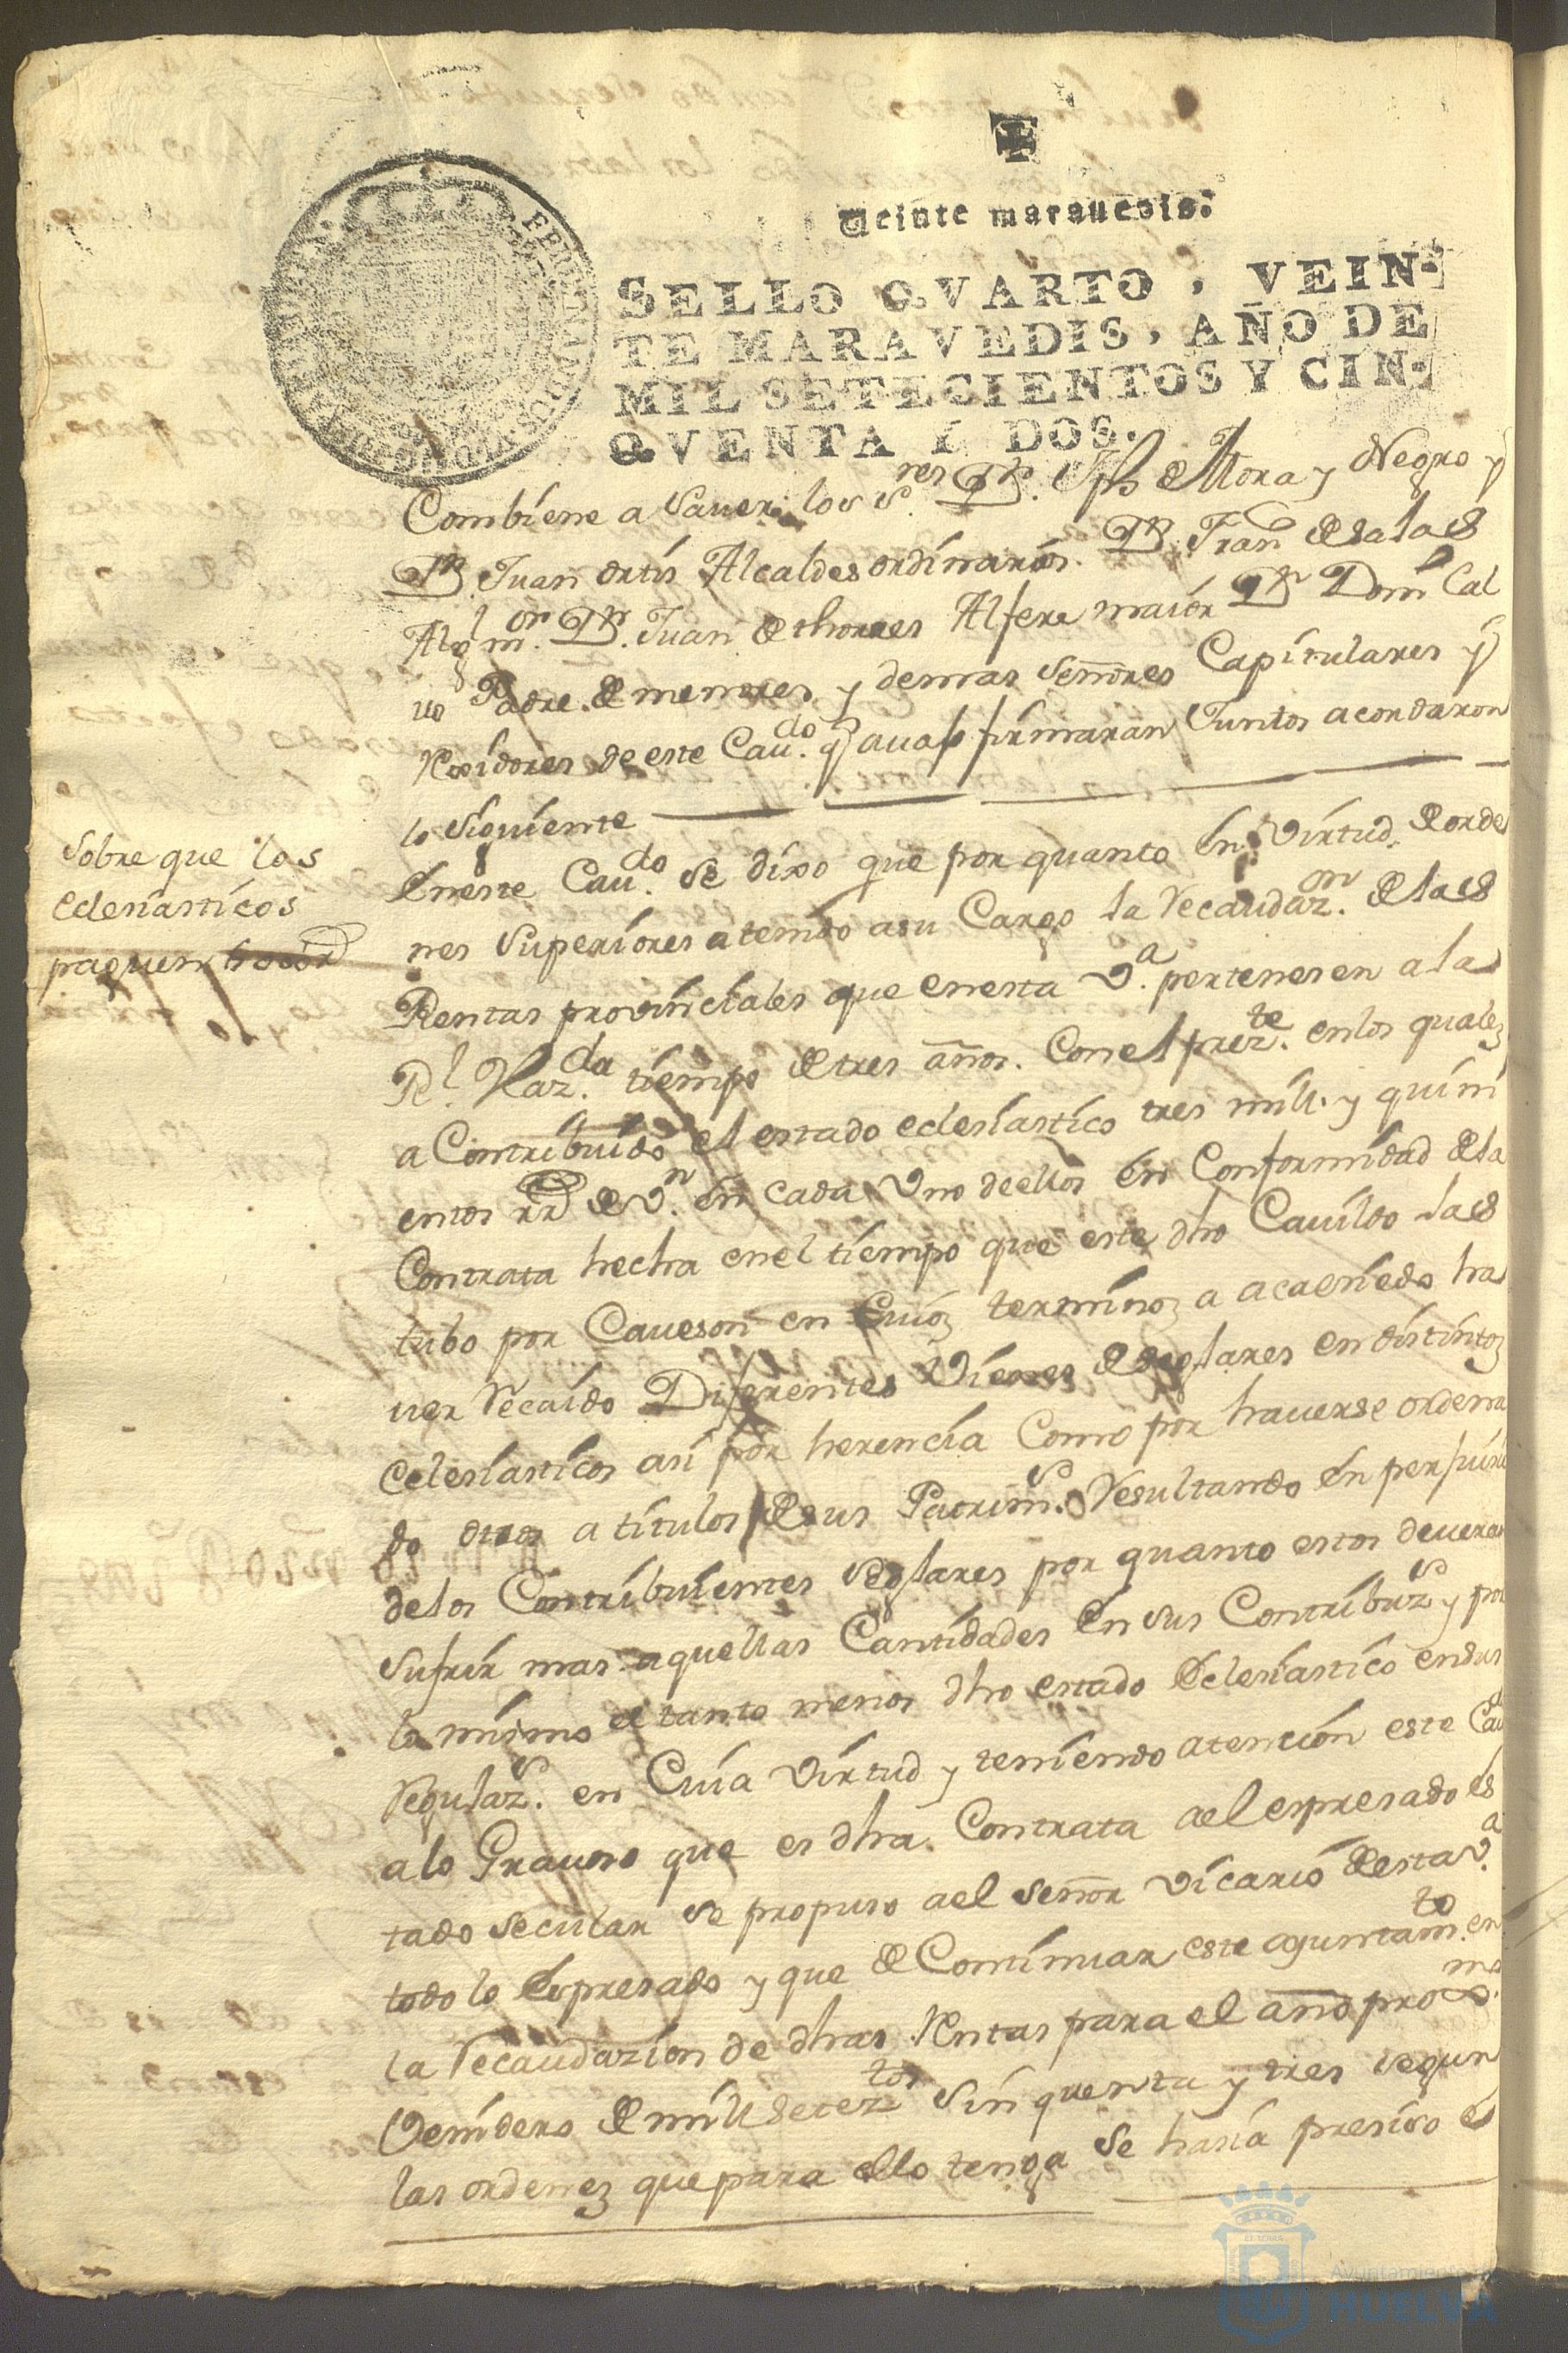 Veinte maravedis.
SELLO QVARTO, VEIN-
TE MARAVEDIS, AÑO DE
MIL SETECIENTOS Y CIN-
QVENTA Y DOS.
Combiene a Saver los S.res Dn. Jph de Mora y Negro y
Dn. Juan ortis Alcaldes ordinarios. Dn. Fran de salas
Alg.l m.or Dn. Juan de thorres Alfere maior Dn Dom Cal
uo Padre de menores y demas Señores Capitulares y
Rexidores de este Cau.do q avajo firmaran Juntos acordaron
lo Siguiente
Sobre que los
eclesiasticos
paguen
Eneste Cau.do se dixo que por quanto En Virtud de orde
nes Superiores a tenido a su Cargo la Recaudaz.on de las
Rentas provinciales que enesta V.a pertenesen a la
R.l Haz.da tiempo de tres años. Con el prez.te en los quales
a Contribuido el estado eclesiastico tres mill y quini
entos rr de V.n en cada Vno de ellos en Conformidad de la
Contrata hecha en el tiempo que este dho Cauildo las
tubo por Caueson en Cuios terminos a acaesiedo ha
uer Recaido Diferentes Vienes de Seglares en distintos
eclesiasticos asi por herencia Como por hauerse ordena
do otros a titulos de sus Patrim.s Resultando En perjuui
de los Contribuientes Seglares por quanto estos deueran
sufrir mas aquellas Cantidades En sus Contribuz.s y por
lo mismo de tanto menos dho estado Eclesiastico en sus
Regulaz.s en Cuia Virtud y teniendo atencion este Cau
a lo Grauoso que es dha. Contrata ael expresado es
tado secular se propuso ael señor Vicario de esta V.a
todo lo Expresado y que de Continuar este aguntam.to en
la Recaudazion de dhas Rentas para el año prox.mo
Venidero de mill setez.tos Sinquenta y tres segun
las ordenes que para ello tenga se haria presiso el
Ayuntamiento de
HUELVA